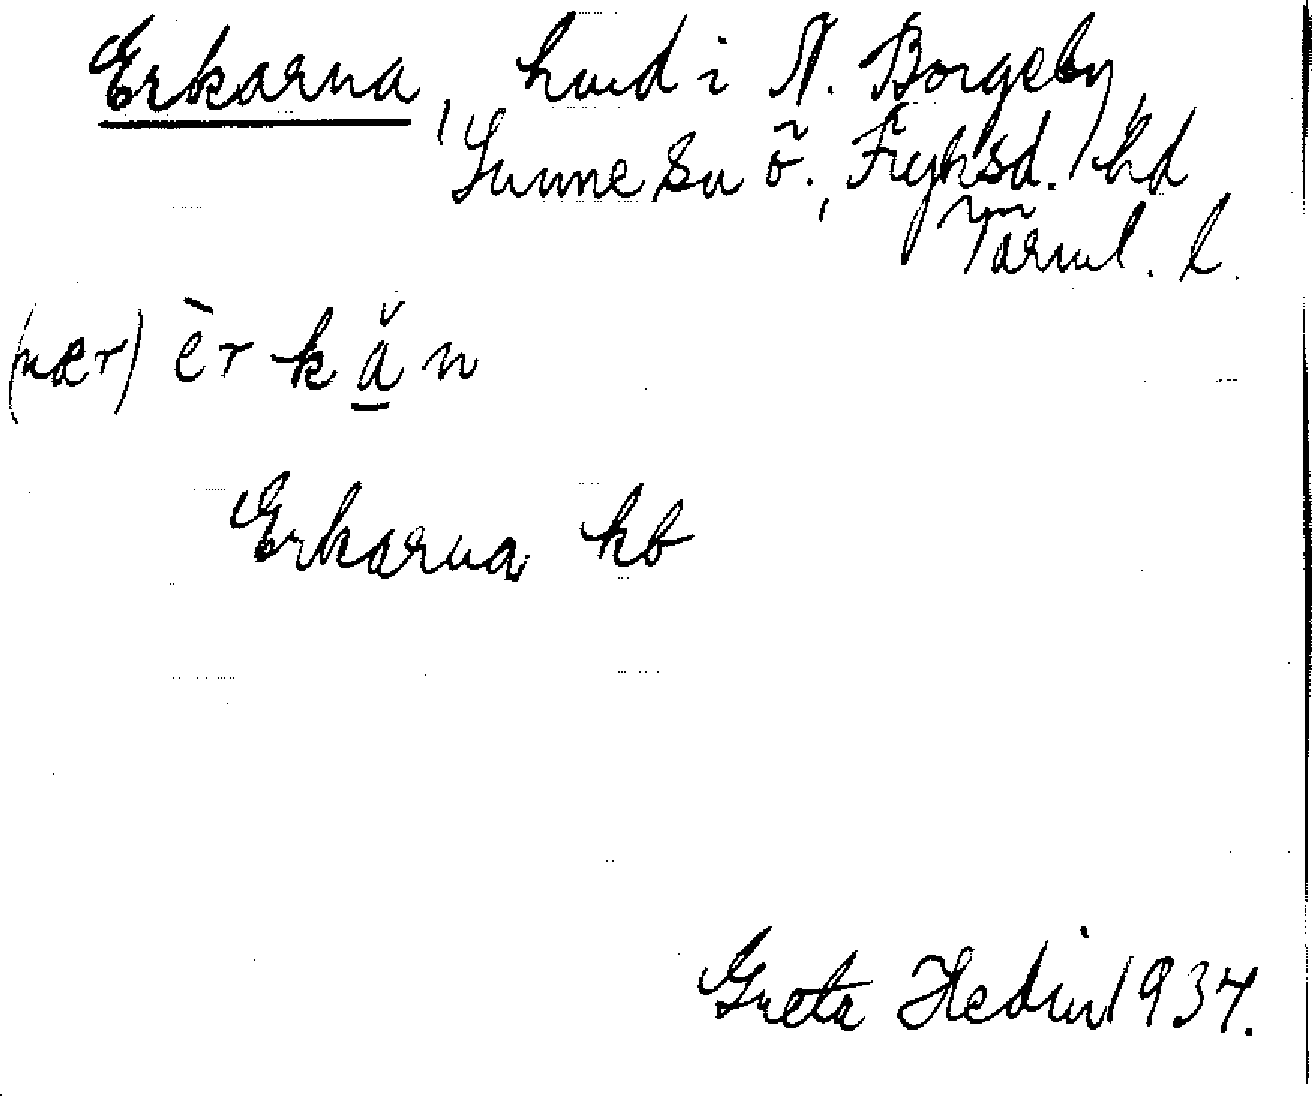 Erkarna, hmd i N. Borgeby,
Sunne sn ö., Fryksd. hd
Värml. l.
(nær) èr k ǎ n
Erkarna kb
Greta Hedin 1934.